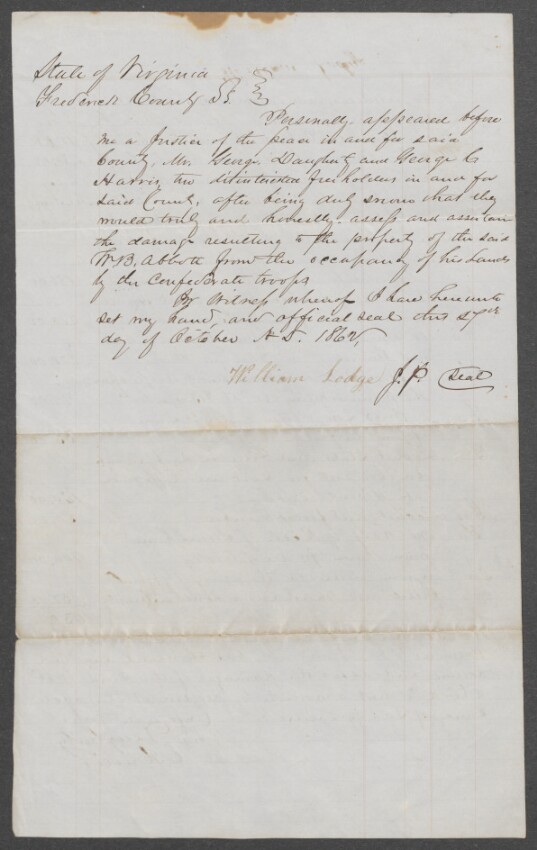 State of Virginia
Frederick County Ss.
Personally appeared before
me a justice of the peace in and for said
County, Mr. George Daugherty and George C
Harris two disinterested freeholders in and for
said County, after being duly sworn that they
would truly and honestly assess and ascertain
the damage resulting to the property of the said
W. B. Abbott from the occupancy of his lands
by the Confederate troops
In Witness whereof I have hereunto
set my hand, and official seal this 27th
day of October A.D. 1862,
William Lodge J.P. Seal